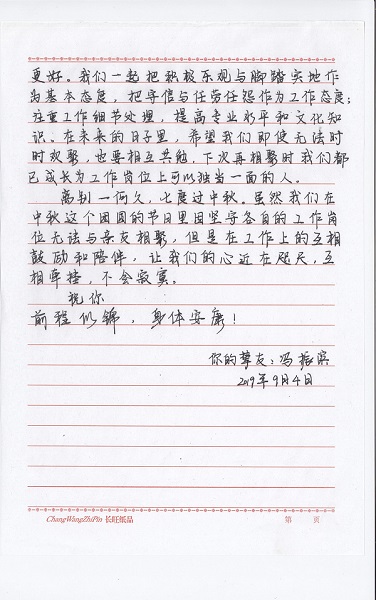 更好。我们一起把积极乐观与脚踏实地作
为基本态度，把守信与任劳任怨作为工作态度；
注重工作细节处理，提高专业水平和文化知
识。在未来的日子里，希望我们即使无法时
时欢聚，也要相互共勉，下次再相聚时我们都
已成长为工作岗位上可以独当一面的人。
离别一何久，七度过中秋。虽然我们在
中秋这个团圆的节日里因坚守各自的工作岗
位无法与亲友相聚，但是在工作上的互相
鼓励和陪伴，让我们的心近在咫尺，互
相牵挂，不会寂寞。
祝你
前程似锦，身体安康！
你的挚友：冯振滨
2019年9月4日
ChangWangZhiPin 长旺纸品
第 页